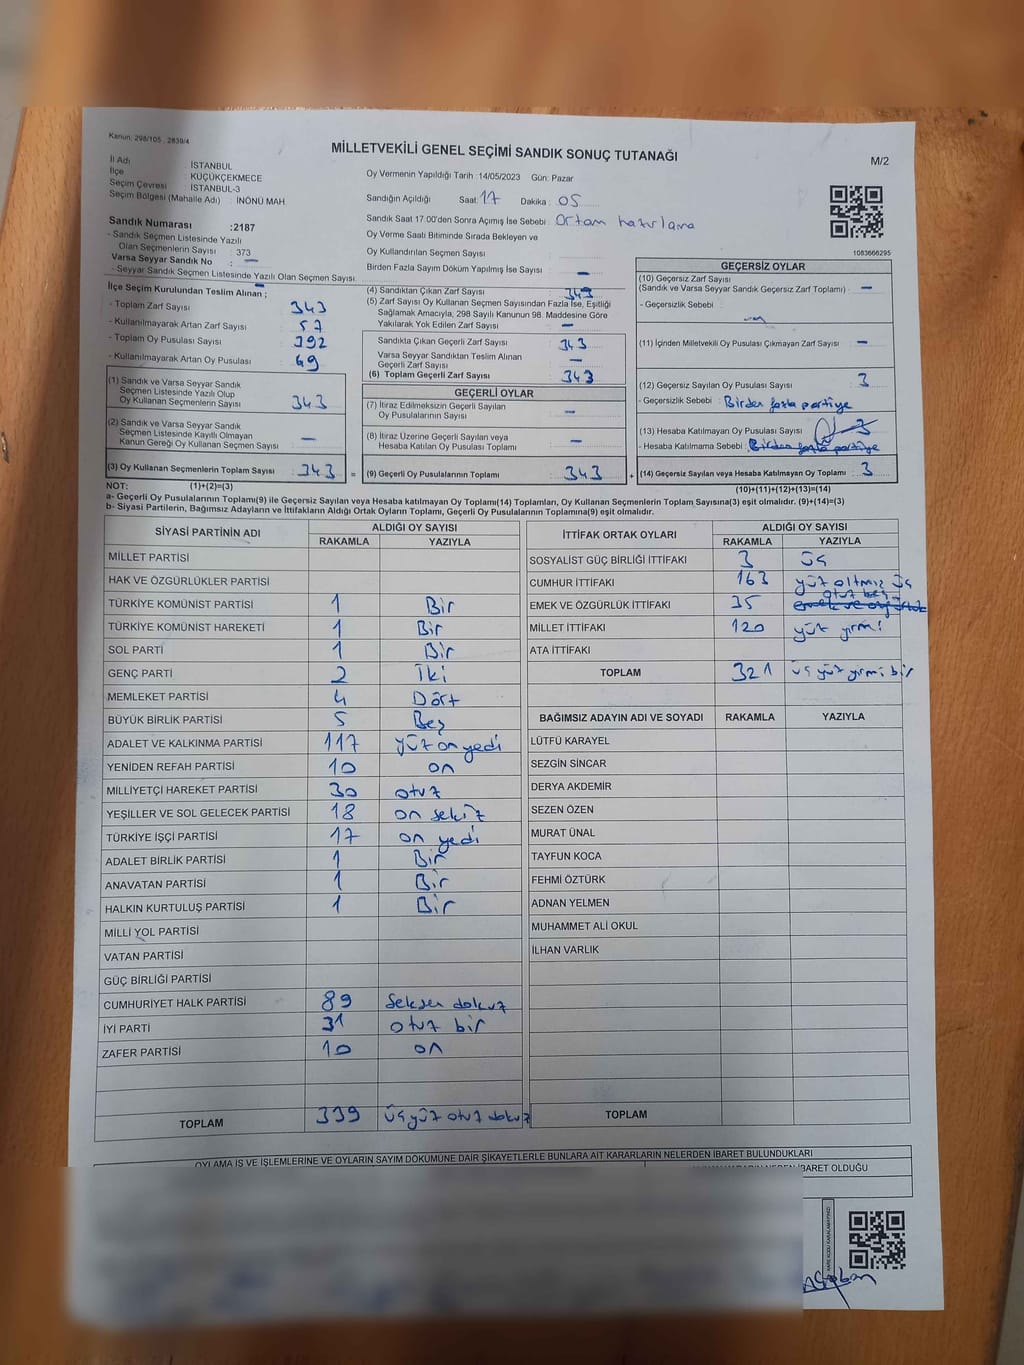 Kanun: 298/105 , 2839/4
MİLLETVEKİLİ GENEL SEÇİMİ SANDIK SONUÇ TUTANAĞI
M/2
İl Adı : İSTANBUL
İlçe : KÜÇÜKÇEKMECE
Seçim Çevresi : İSTANBUL-3
Seçim Bölgesi (Mahalle Adı) : İNÖNÜ MAH
Oy Vermenin Yapıldığı Tarih :14/05/2023 Gün: Pazar
Sandığın Açıldığı Saat: 17 Dakika : 05
Sandık Saat 17:00'den Sonra Açımış İse Sebebi : Ortam hazırlama
Oy Verme Saati Bitiminde Sırada Bekleyen ve
Oy Kullandırılan Seçmen Sayısı
Birden Fazla Sayım Döküm Yapılmış İse Sayısı : –
1083666295
Sandık Numarası :2187
- Sandık Seçmen Listesinde Yazılı
Olan Seçmenlerin Sayısı : 373
Varsa Seyyar Sandık No : –
- Seyyar Sandık Seçmen Listesinde Yazılı Olan Seçmen Sayısı.
İlçe Seçim Kurulundan Teslim Alınan ;
- Toplam Zarf Sayısı : 343
- Kullanılmayarak Artan Zarf Sayısı : 57
- Toplam Oy Pusulası Sayısı : 392
- Kullanılmayarak Artan Oy Pusulası : 49
(1) Sandık ve Varsa Seyyar Sandık
Seçmen Listesinde Yazılı Olup
Oy Kullanan Seçmenlerin Sayısı : 343
(2) Sandık ve Varsa Seyyar Sandık
Seçmen Listesinde Kayıtlı Olmayan
Kanun Gereği Oy Kullanan Seçmen Sayısı : –
(3) Oy Kullanan Seçmenlerin Toplam Sayısı : 343 =
(4) Sandıktan Çıkan Zarf Sayısı : 343
(5) Zarf Sayısı Oy Kullanan Seçmen Sayısından Fazla İse, Eşitliği
Sağlamak Amacıyla, 298 Sayılı Kanunun 98. Maddesine Göre
Yakılarak Yok Edilen Zarf Sayısı : –
Sandıkta Çıkan Geçerli Zarf Sayısı : 343
Varsa Seyyar Sandıktan Teslim Alınan
Geçerli Zarf Sayısı : –
(6) Toplam Geçerli Zarf Sayısı : 343
GEÇERLİ OYLAR
(7) İtiraz Edilmeksizin Geçerli Sayılan
Oy Pusulalarının Sayısı : –
(8) İtiraz Üzerine Geçerli Sayılan veya
Hesaba Katılan Oy Pusulaları Toplamı : –
(9) Geçerli Oy Pusulalarının Toplamı : 343 +
GEÇERSİZ OYLAR
(10) Geçersiz Zarf Sayısı
(Sandık ve Varsa Seyyar Sandık Geçersiz Zarf Toplamı) : –
- Geçersizlik Sebebi :
(11) İçinden Milletvekili Oy Pusulası Çıkmayan Zarf Sayısı : –
(12) Geçersiz Sayılan Oy Pusulası Sayısı : 3
- Geçersizlik Sebebi : Birden fazla partiye
(13) Hesaba Katılmayan Oy Pusulası Sayısı : 3
- Hesaba Katılmama Sebebi : Birden fazla partiye
(14) Geçersiz Sayılan veya Hesaba Katılmayan Oy Toplamı : 3
NOT: (1)+(2)=(3) (10)+(11)+(12)+(13)=(14)
a- Geçerli Oy Pusulalarının Toplamı(9) ile Geçersiz Sayılan veya Hesaba katılmayan Oy Toplamı(14) Toplamları, Oy Kullanan Seçmenlerin Toplam Sayısına(3) eşit olmalıdır. (9)+(14)=(3)
b- Siyasi Partilerin, Bağımsız Adayların ve İttifakların Aldığı Ortak Oyların Toplamı, Geçerli Oy Pusulalarının Toplamına(9) eşit olmalıdır.
SİYASİ PARTİNİN ADI ALDIĞI OY SAYISI
RAKAMLA YAZIYLA
MİLLET PARTİSİ
HAK VE ÖZGÜRLÜKLER PARTİSİ
TÜRKİYE KOMÜNİST PARTİSİ 1 Bir
TÜRKİYE KOMÜNİST HAREKETİ 1 Bir
SOL PARTİ 1 Bir
GENÇ PARTİ 2 İki
MEMLEKET PARTİSİ 4 Dört
BÜYÜK BİRLİK PARTİSİ 5 Beş
ADALET VE KALKINMA PARTİSİ 117 yüz on yedi
YENİDEN REFAH PARTİSİ 10 on
MİLLİYETÇİ HAREKET PARTİSİ 30 otuz
YEŞİLLER VE SOL GELECEK PARTİSİ 18 on sekiz
TÜRKİYE İŞÇİ PARTİSİ 17 on yedi
ADALET BİRLİK PARTİSİ 1 Bir
ANAVATAN PARTİSİ 1 Bir
HALKIN KURTULUŞ PARTİSİ 1 Bir
MİLLİ YOL PARTİSİ
VATAN PARTİSİ
GÜÇ BİRLİĞİ PARTİSİ
CUMHURİYET HALK PARTİSİ 89 Seksen dokuz
İYİ PARTİ 31 otuz bir
ZAFER PARTİSİ 10 on
TOPLAM 339 üçyüz otuz dokuz
İTTİFAK ORTAK OYLARI ALDIĞI OY SAYISI
RAKAMLA YAZIYLA
SOSYALİST GÜÇ BİRLİĞİ İTTİFAKI 3 üç
CUMHUR İTTİFAKI 163 yüz altmış üç
EMEK VE ÖZGÜRLÜK İTTİFAKI 35 otuz beş
MİLLET İTTİFAKI 120 yüz yirmi
ATA İTTİFAKI
TOPLAM 321 üç yüz yirmi bir
BAĞIMSIZ ADAYIN ADI VE SOYADI RAKAMLA YAZIYLA
LÜTFÜ KARAYEL
SEZGİN SİNCAR
DERYA AKDEMİR
SEZEN ÖZEN
MURAT ÜNAL
TAYFUN KOCA
FEHMİ ÖZTÜRK
ADNAN YELMEN
MUHAMMET ALİ OKUL
İLHAN VARLIK
TOPLAM
OYLAMA İŞ VE İŞLEMLERİNE VE OYLARIN SAYIM DÖKÜMÜNE DAİR ŞİKAYETLERLE BUNLARA AİT KARARLARIN NELERDEN İBARET BULUNDUKLARI
İBARET OLDUĞU